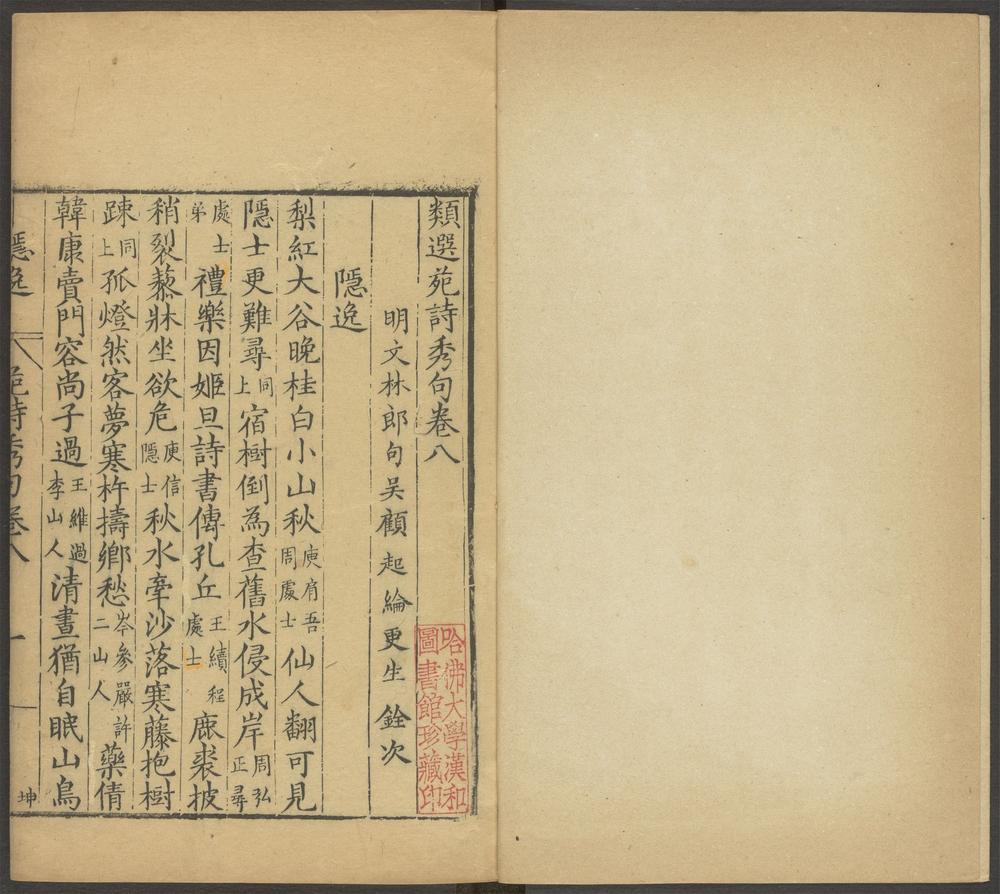 類選苑詩秀句卷八
明文林郎句吳顧起綸更生銓次
隱逸
梨紅大谷晚桂白小山秋庾肩吾周處士仙人翻可見
隱士更難尋同上宿樹倒為查舊水侵成岸周弘正尋
處士弟禮樂因姬旦詩書傳孔丘王績程處士鹿裘披
稍裂藜牀坐欲危庾信隱士秋水牽沙落寒藤抱樹
踈同上孤燈然客夢寒杵擣鄉愁岑參嚴許二山人藥倩
韓康賣門容尚子過王維過李山人清晝猶自眠山鳥
隱逸
苑詩秀句卷八
一
坤
哈佛大學漢和
圖書館珍藏印